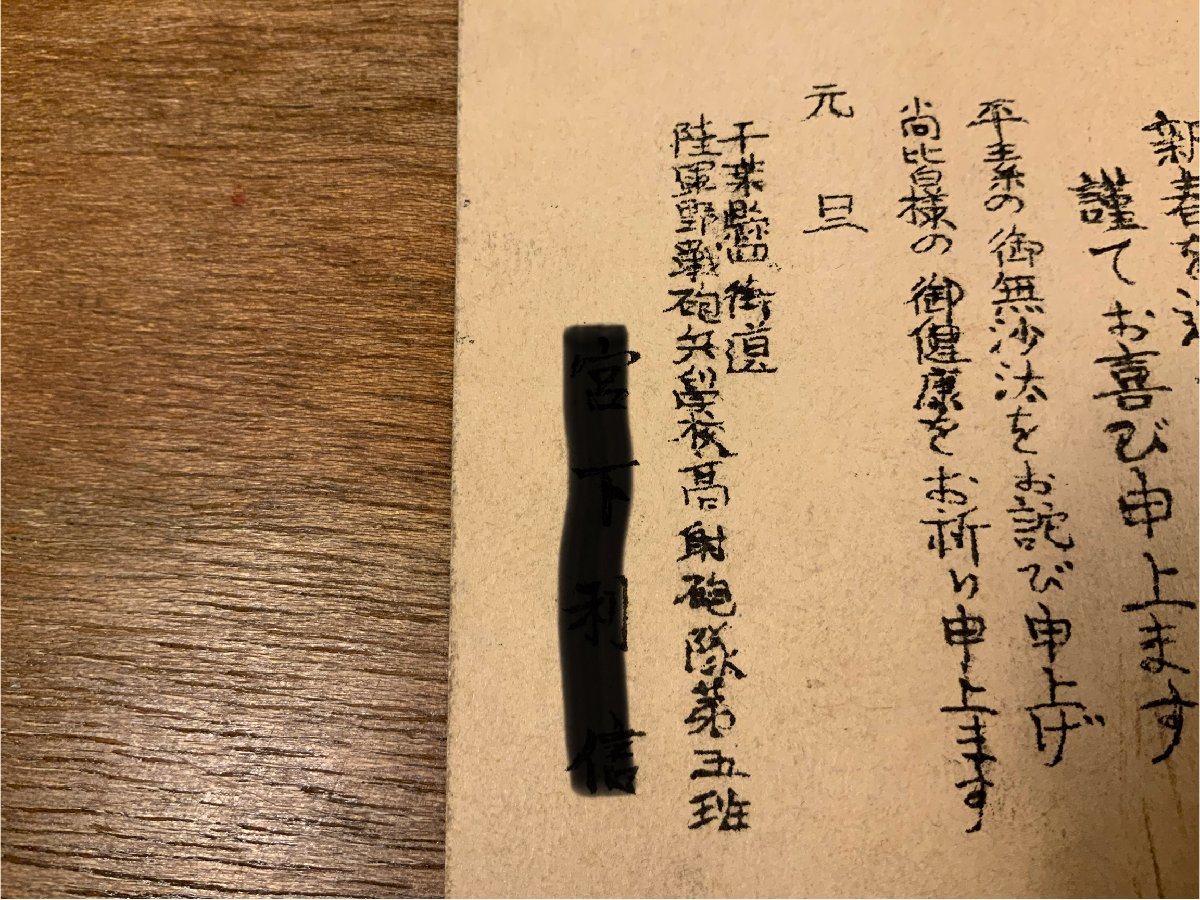 新春を
謹てお喜び申上ます
平素の御無沙汰をお詫び申上げ
尚皆様の御健康をお祈り申上ます
元旦
千葉縣四街道
陸軍野戰砲兵學校高射砲隊第五班